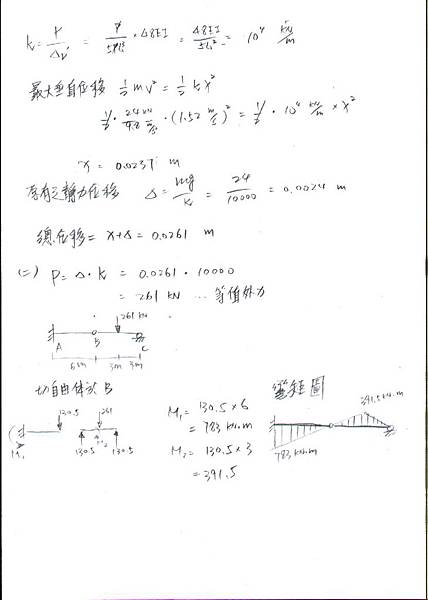 k = P/Δv = P/5Pl³ · 48EI = 48EI/5l³ = 10⁴ kN/m
最大垂直位移 ½mv² = ½kx²
½ · 24 kN/9.8 m/s² · (1.52 m/s)² = ½ · 10⁴ kN/m × x²
x = 0.0237 m
原有之靜力位移 Δ = mg/k = 24/10000 = 0.0024 m
總位移 = x+Δ = 0.0261 m
(二) P = Δ · k = 0.0261 · 10000
= 261 kN ... 等值外力
261 kN
A B C
6m 3m 3m
切自由体 B
彎矩圖
130.5 261
M₁ M₂
130.5 130.5
M₁ = 130.5 × 6
= 783 kN.m
M₂ = 130.5 × 3
= 391.5
391.5 kN.m
783 kN.m